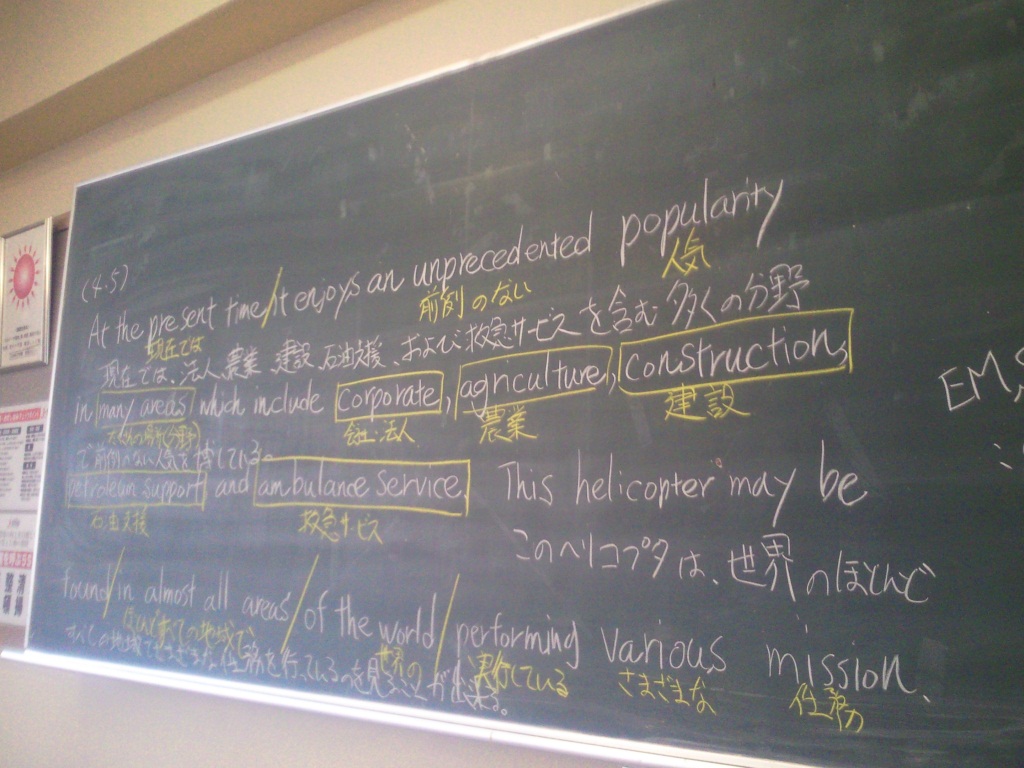 (4.5)
At the present time/it enjoys an unprecedented popularity
現在では 前例のない 人気
現在では、法人、農業、建設、石油支援、および救急サービスを含む多くの分野
in many areas which include corporate, agriculture, construction,
会社・法人 農業 建設
で前例のない人気を博している。
petroleum support and ambulance service. This helicopter may be
石油支援 救急サービス
このヘリコプタは、世界のほとんど
found/in almost all areas/of the world/performing various mission.
ほとんど全ての地域で 世界の 実行している さまざまな 任務
すべての地域でさまざまな任務を行っているのを見ることが出来る。
EM